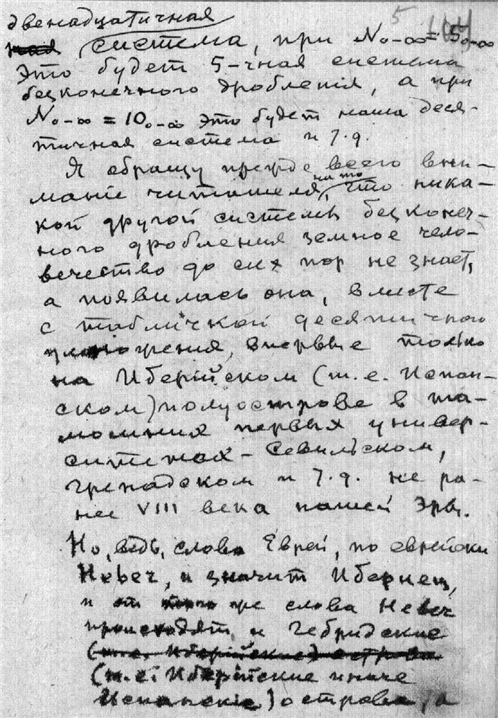 двенадцатичная
система, при N₀₋∞ = 5₀₋∞
Это будет 5-чная система
безконечного дробленія, а при
N₀₋∞ = 10₀₋∞ это будет наша деся-
тичная система и т.д.
Я обращу прежде всего вни-
маніе читателя, на то что ника-
кой другой системы безконеч-
ного дробления земное чело-
вечество до сих пор не знает,
а появилась она, вместе
с табличкой десятичного
умножения, впервые только
на Иберійском (т.е. Испан-
ском) полуострове в та-
мошних первых универ-
ситетах – Севильском,
гренадском и т.д. не ра-
нее VIII века нашей Эры.
Но, ведь, слово Еврей, по еврейски
и значит Иберiец,
и от того же слова
происходят и Гебридские
(т.е. Иберійские) острова
(т.е. Иберійские иначе
Испанскіе) острова, а